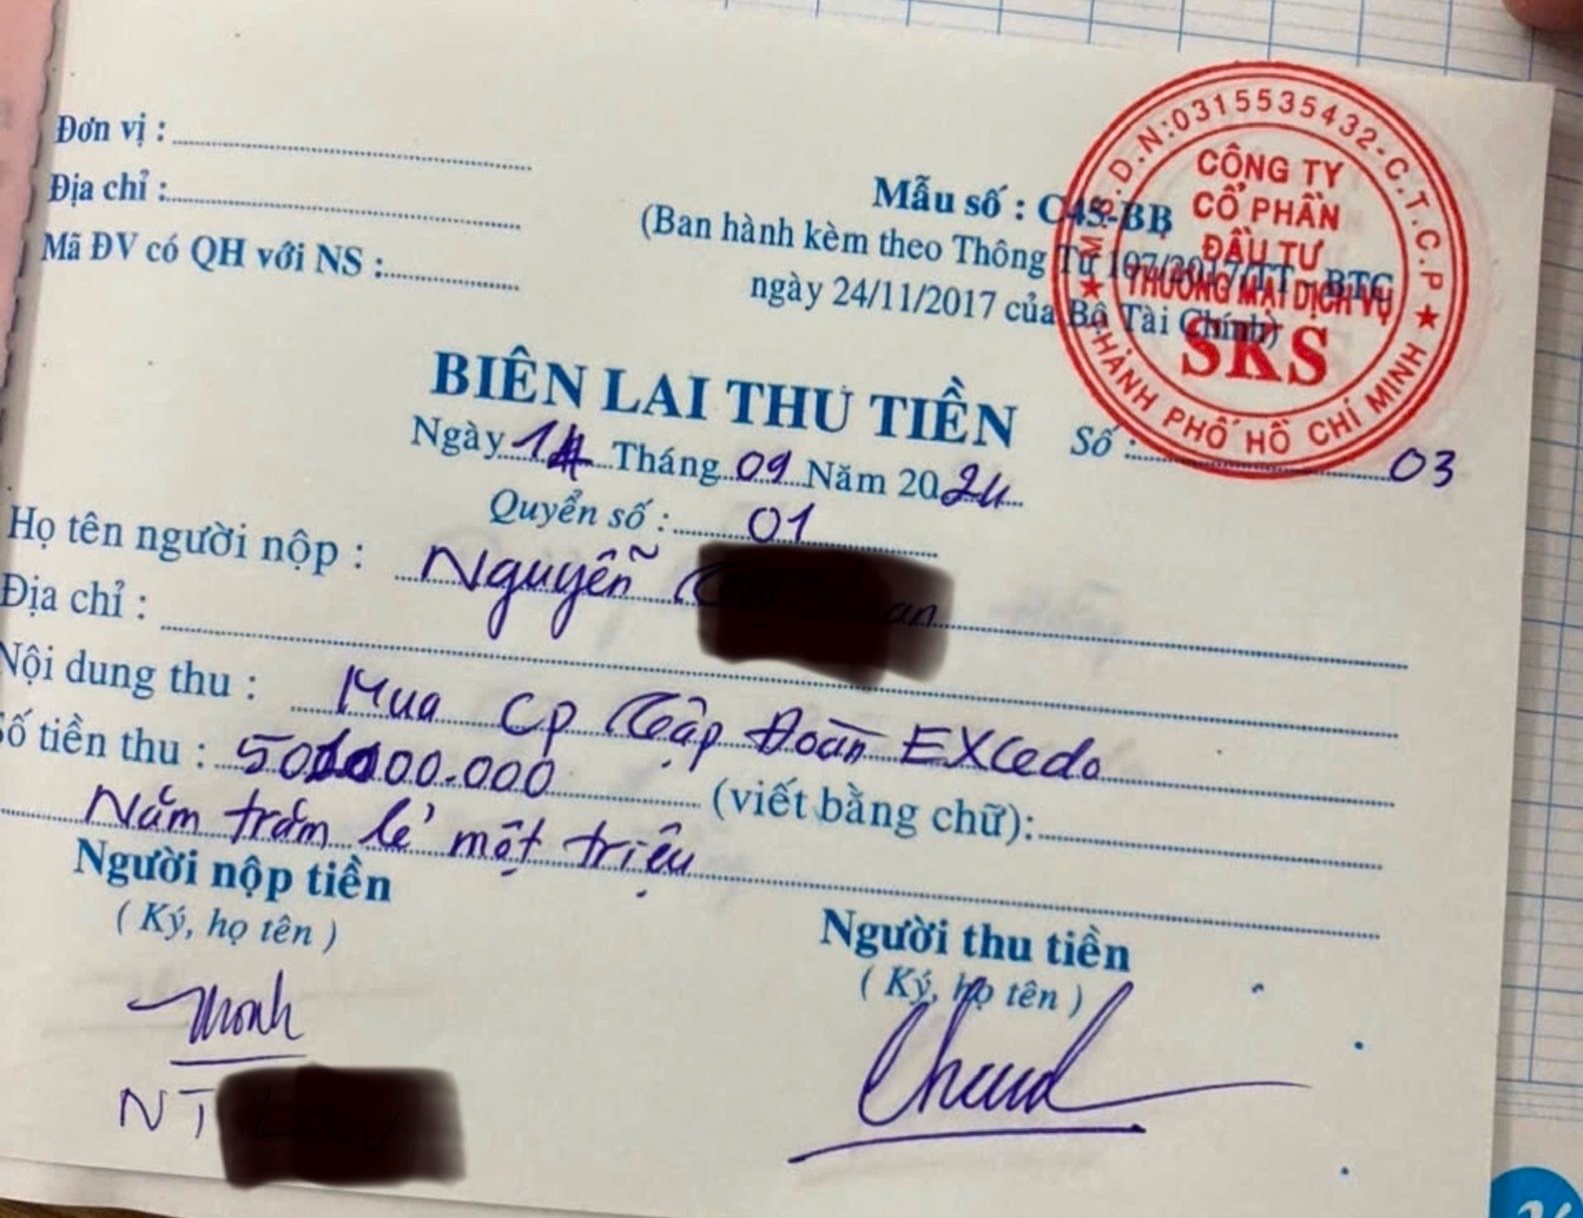 Đơn vị :
Địa chỉ :
Mã ĐV có QH với NS :
M.S.D.N:0315535432-C.T.C.P
THÀNH PHỐ HỒ CHÍ MINH
CÔNG TY
CỔ PHẦN
ĐẦU TƯ
THƯƠNG MẠI DỊCH VỤ
SKS
Mẫu số : C45-BB
(Ban hành kèm theo Thông Tư 107/2017/TT - BTC
ngày 24/11/2017 của Bộ Tài Chính)
BIÊN LAI THU TIỀN
Ngày 14 Tháng 09 Năm 2024
Số : 03
Quyển số : 01
Họ tên người nộp : Nguyễn
Địa chỉ :
Nội dung thu : Mua Cp Tập Đoàn EXcedo
Số tiền thu : 501.000.000 (viết bằng chữ):
Năm trăm lẻ một triệu
Người nộp tiền
( Ký, họ tên )
Người thu tiền
( Ký, họ tên )
NT